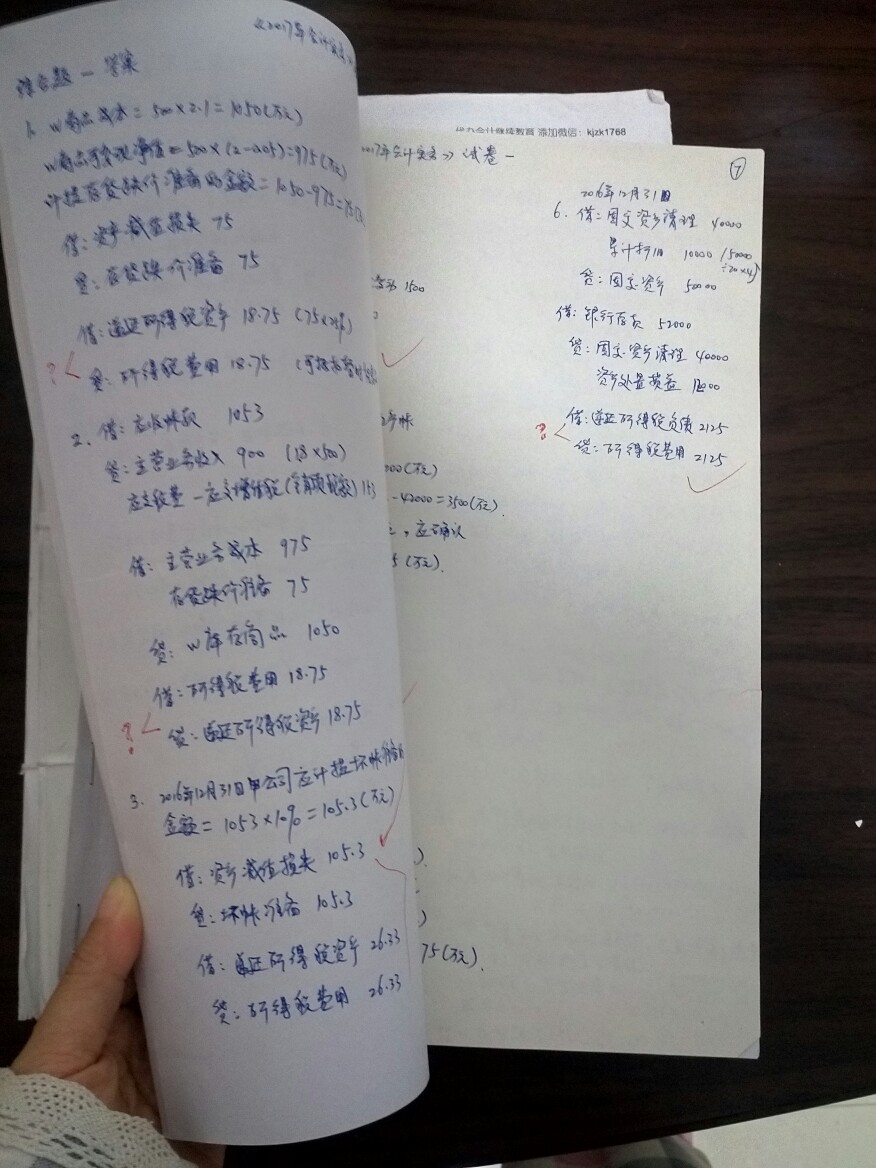 《2017年会计实务
综合题一 答案
1. W商品成本=500×2.1=1050(万元)
W商品可变现净值=500×(2-0.05)=975(万元)
计提存货跌价准备的金额=1050-975=75(万
借:资产减值损失 75
贷:存货跌价准备 75
借:递延所得税资产 18.75 (75×25%)
? 贷:所得税费用 18.75 (可抵扣暂时
2. 借:应收帐款 1053
贷:主营业务收入 900 (1.8×500)
应交税费—应交增值税(销项税额) 153
借:主营业务成本 975
存货跌价准备 75
贷:W库存商品 1050
借:所得税费用 18.75
? 贷:递延所得税资产 18.75
3. 2016年12月31日甲公司应计提坏帐准备的
金额=1053×10%=105.3(万元)
借:资产减值损失 105.3
贷:坏帐准备 105.3
借:递延所得税资产 26.33
贷:所得税费用 26.33
代办会计继续教育 添加微信:kjzk1768
2017年会计实务》试卷一
⑦
1500
000(万元)
-42000=3500(万元).
,应确认
5(万元).
).
)
75(万元).
2016年12月31日
6. 借:固定资产清理 40000
累计折旧 10000 (50000
÷20×4)
贷:固定资产 50000
借:银行存款 52000
贷:固定资产清理 40000
资产处置损益 12000
借:递延所得税负债 2125
? 贷:所得税费用 2125